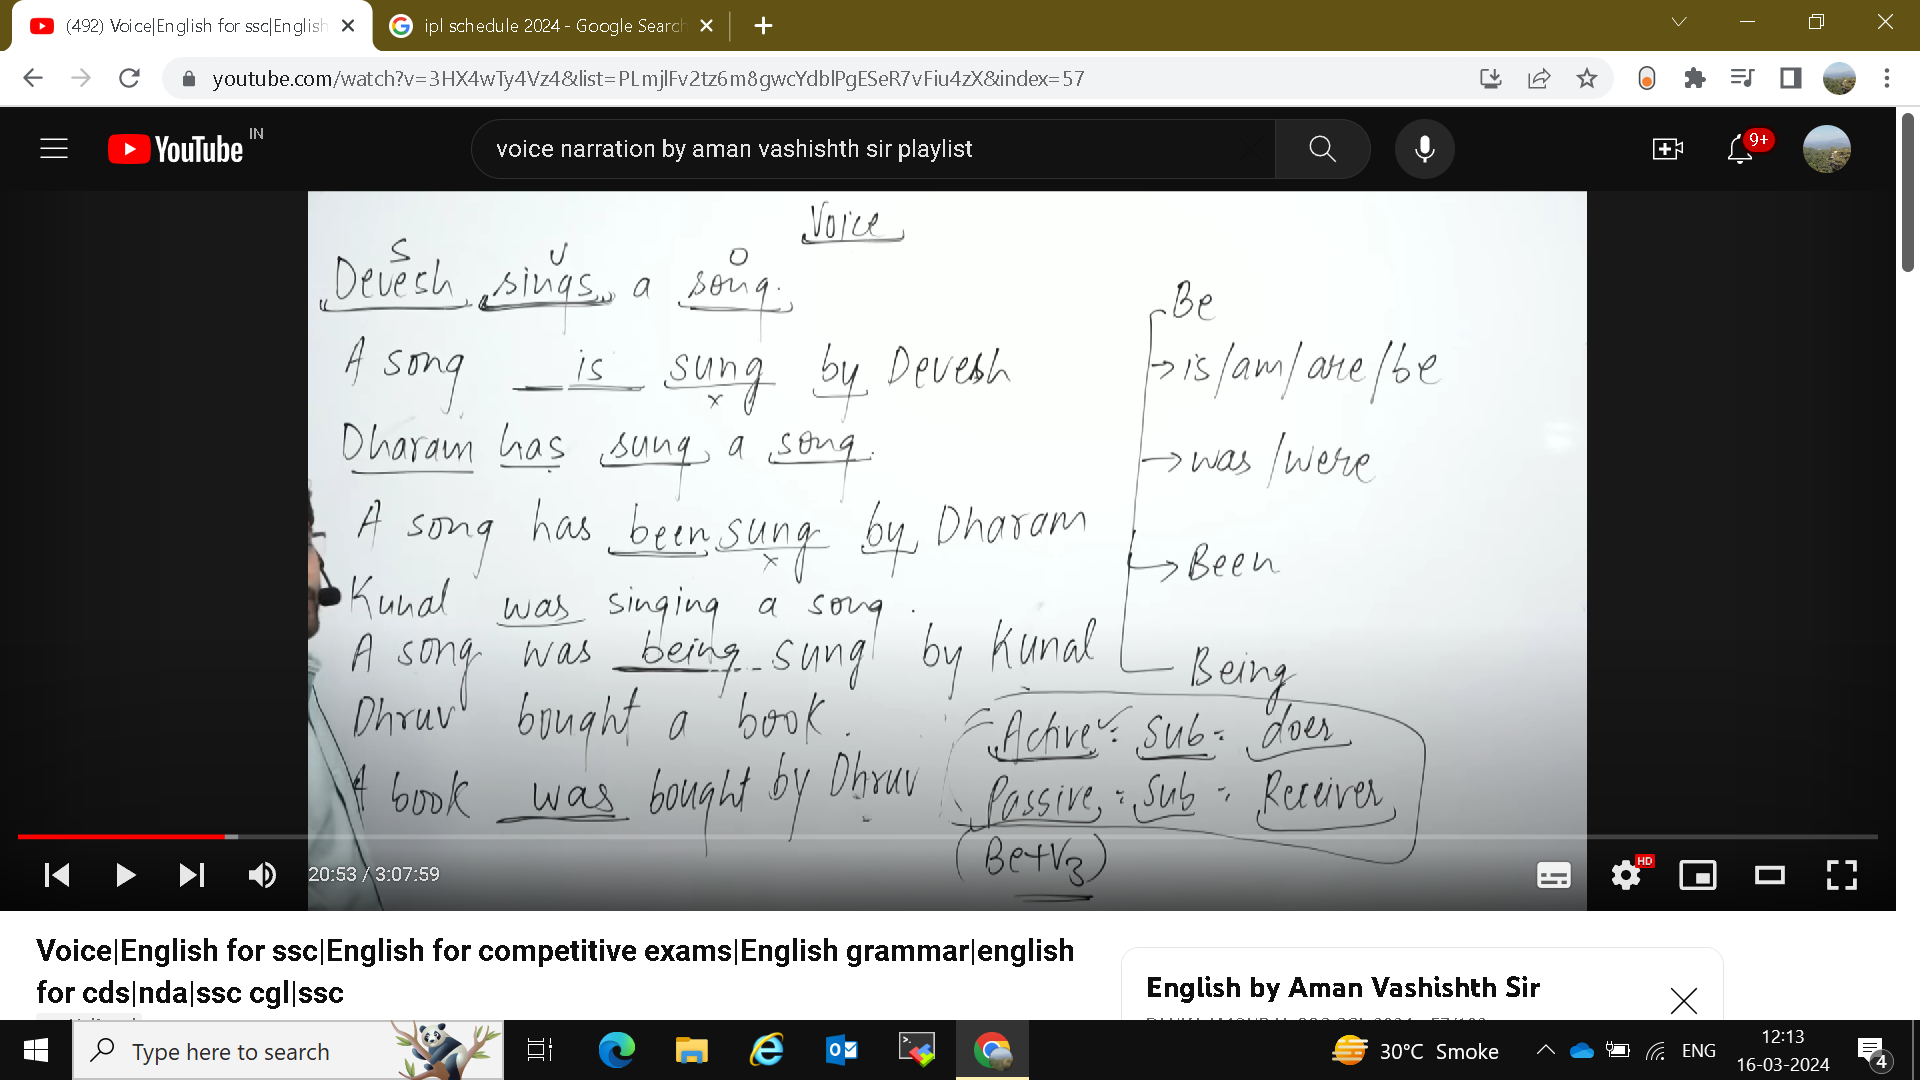 (492) Voice|English for ssc|English
ipl schedule 2024 - Google Search
youtube.com/watch?v=3HX4wTy4Vz4&list=PLmjlFv2tz6m8gwcYdblPgESeR7vFiu4zX&index=57
YouTube IN
voice narration by aman vashishth sir playlist
9+
Voice
S V O
Devesh sings a song.
A song is sung by Devesh
Dharam has sung a song.
A song has been sung by Dharam
Kunal was singing a song.
A song was being sung by Kunal
Dhruv bought a book.
A book was bought by Dhruv
Be
is/am/are/be
was/were
Been
Being
Active = Sub = doer
Passive = Sub = Receiver
(Be+V3)
20:53 / 3:07:59
HD
Voice|English for ssc|English for competitive exams|English grammar|english
for cds|nda|ssc cgl|ssc
English by Aman Vashishth Sir
Type here to search
30°C Smoke
ENG
12:13
16-03-2024
4